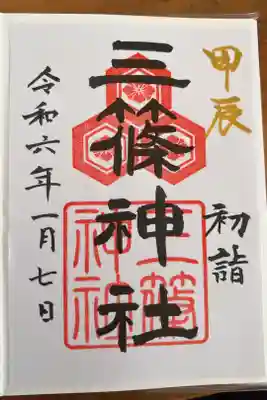 甲辰
初詣
三篠神社
三篠神社
令和六年一月七日